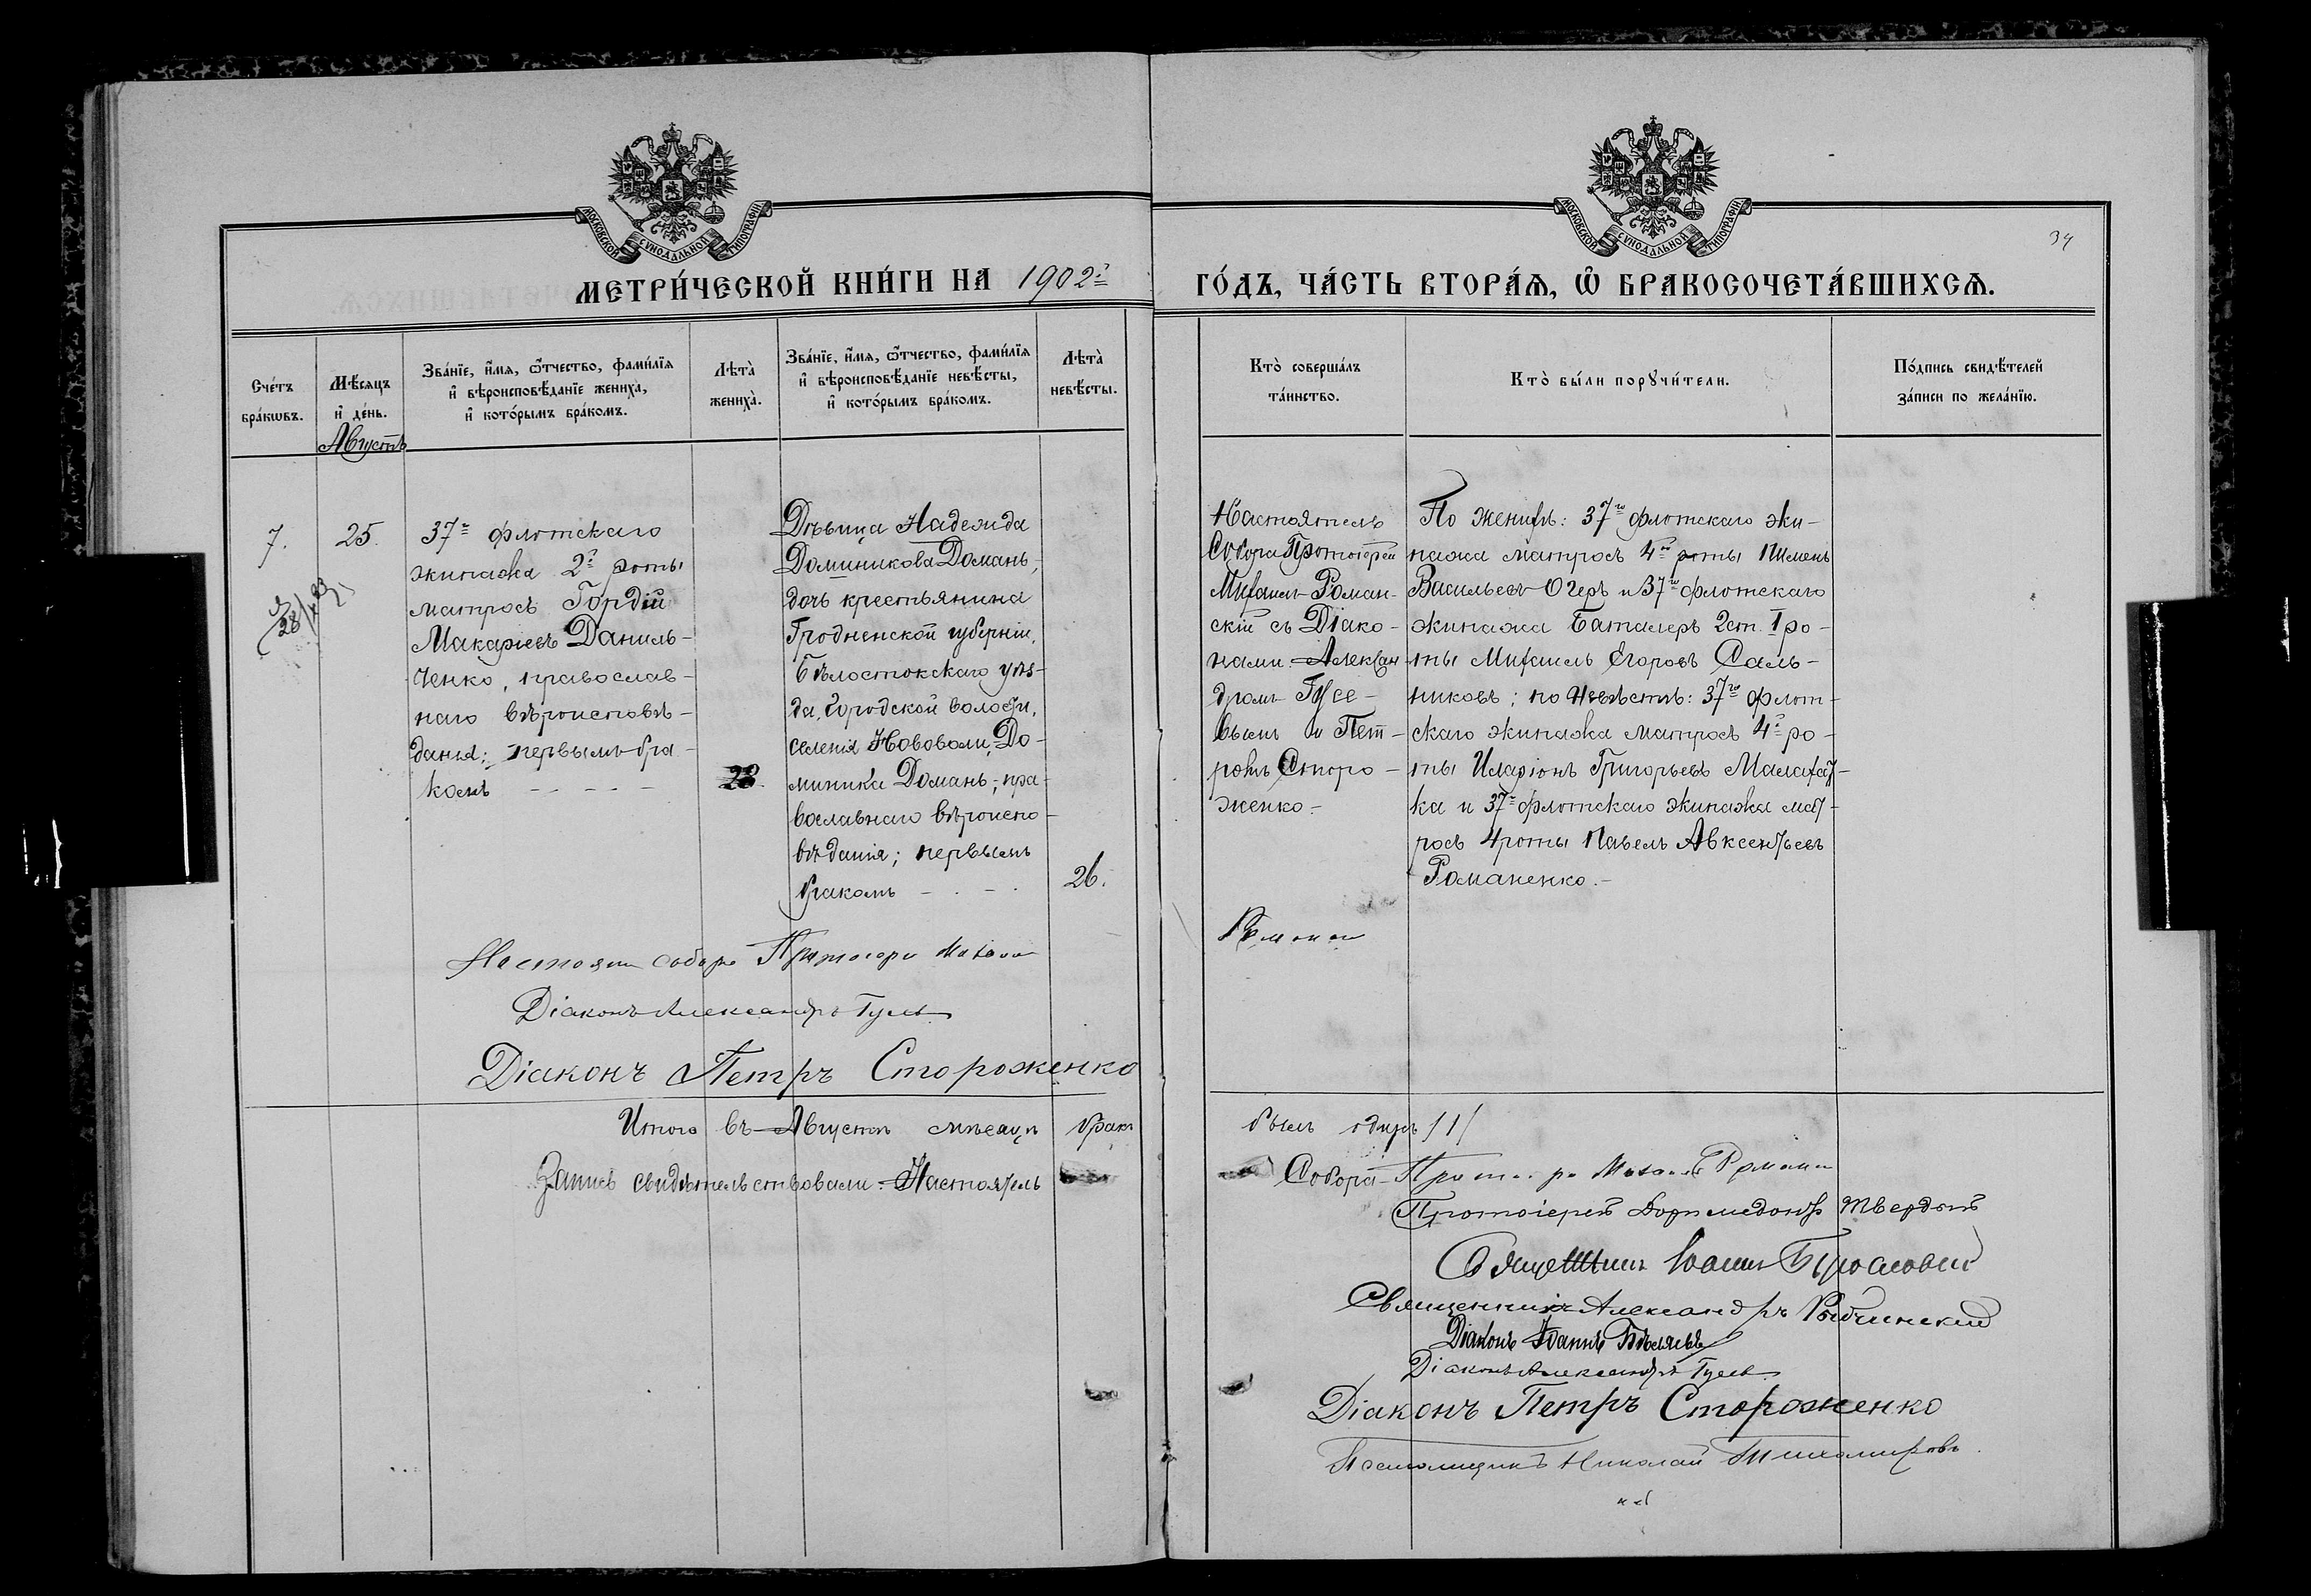 МОСКОВСКОЙ СѴНОДАЛЬНОЙ ТИПОГРАФІИ
МОСКОВСКОЙ СѴНОДАЛЬНОЙ ТИПОГРАФІИ
34
МЕТРИ́ЧЕСКОЙ КНИ́ГИ НА 1902й
ГО́ДЪ, ЧА́СТЬ ВТОРА́Ѧ, Ѽ БРАКОСОЧЕТА́ВШИХСѦ.
Сче́тъ
бра́кѡвъ.
Мѣ́сѧцъ
и҆ де́нь.
Августъ
Зва́нїе, и҆́мѧ, ѻ҆́тчество, фами́лїѧ
и҆ вѣроисповѣ́данїе жениха̀,
и҆ кото́рымъ бра́комъ.
Лѣта̀
жениха̀.
Зва́нїе, и҆́мѧ, ѻ҆́тчество, фами́лїѧ
и҆ вѣроисповѣ́данїе невѣ́сты,
и҆ кото́рымъ бра́комъ.
Лѣта̀
невѣ́сты.
Кто̀ соверша́лъ
та́инство.
Кто̀ бы́ли порꙋчи́тели.
По́дпись свидѣ́телей
за́писи по жела́нїю.
7.
25.
37го флотскаго
экипажа 2й роты
матросъ Гордій
Макаріевъ Даниль-
ченко, православ-
наго вѣроисповѣ-
данія; первымъ бра-
комъ
28.
Дѣвица Надежда
Доминикова Домань,
дочь крестьянина
Гродненской губерніи,
Бѣлостокскаго уѣз-
да, Городской волости,
селенія Нововоли, До-
миника Домань; пра-
вославнаго вѣроиспо-
вѣданія; первымъ
бракомъ
26.
Настоятель
Собора Протоіерей
Михаилъ Роман-
скій съ Діако-
нами: Алексан-
дромъ Гусе-
вымъ и Пет-
ромъ Сторо-
женко.
По женихѣ: 37го флотскаго эки-
пажа матросъ 4й роты Пименъ
Васильевъ Очеръ и 37го флотскаго
экипажа Баталеръ 2 ст. 1 ро-
ты Михаилъ Егоровъ Саль-
никовъ; по невѣстѣ: 37го флот-
скаго экипажа матросъ 4й ро-
ты Иларіонъ Григорьевъ Малахат-
ка и 37го флотскаго экипажа мат-
росъ 4 роты Павелъ Авксентьевъ
Романенко.
Настоятель собора Протоіерей Михаилъ
Діаконъ Александръ Гусевъ
Діаконъ Петръ Стороженко
Итого въ Августѣ мѣсяцѣ бракъ
былъ одинъ /1/
Запись свидѣтельствовали: Настоятель
Собора Протоіерей Михаилъ
Протоіерей Доримедонтъ Твердый
Священникъ Іоаннъ
Священникъ Александръ Рыбчинскій
Діаконъ Іоаннъ Бѣляевъ
Діаконъ Александръ Гусевъ
Діаконъ Петръ Стороженко
Псаломщикъ Николай Тихомировъ